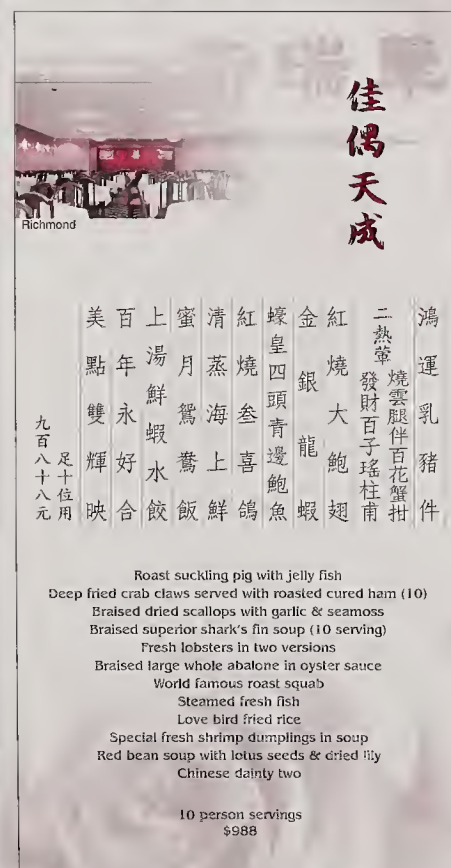 佳偶天成
Richmond
鴻運乳豬件
二熱葷
燒雲腿伴百花蟹拑
發財百子瑤柱甫
紅燒大鮑翅
金銀龍蝦
蠔皇四頭青邊鮑魚
紅燒叁喜鴿
清蒸海上鮮
蜜月鴛鴦飯
上湯鮮蝦水餃
百年永好合
美點雙輝映
足十位用
九百八十八元
Roast suckling pig with jelly fish
Deep fried crab claws served with roasted cured ham (10)
Braised dried scallops with garlic & seamoss
Braised superior shark's fin soup (10 serving)
Fresh lobsters in two versions
Braised large whole abalone in oyster sauce
World famous roast squab
Steamed fresh fish
Love bird fried rice
Special fresh shrimp dumplings in soup
Red bean soup with lotus seeds & dried lily
Chinese dainty two
10 person servings
$988